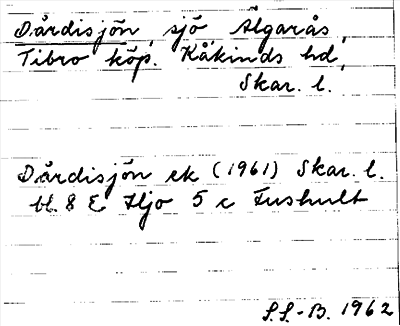 Dårdisjön, sjö, Älgarås,
Tibro köp. Kåkinds hd,
Skar. l.
Dårdisjön ek (1961) Skar. l.
bl. 8 E Hjo 5 c Fushult
S.S.-B. 1962